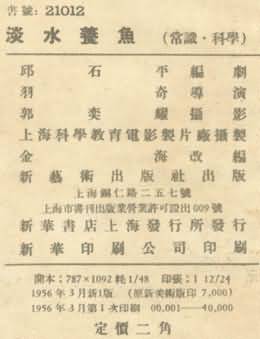 書號：21012
淡水養魚（常識·科學）
邱石平編劇
羽奇導演
郭奕耀攝影
上海科學教育電影製片廠攝製
金海改編
新藝術出版社出版
上海銅仁路二五七號
上海市書刊出版業營業許可證出009號
新華書店上海發行所發行
新華印刷公司印刷
開本：787×1092 耗1/48 印張：1 12/24
1956年3月新1版（原新美術版印7,000）
1956年3月第1次印刷 00,001—40,000
定價二角